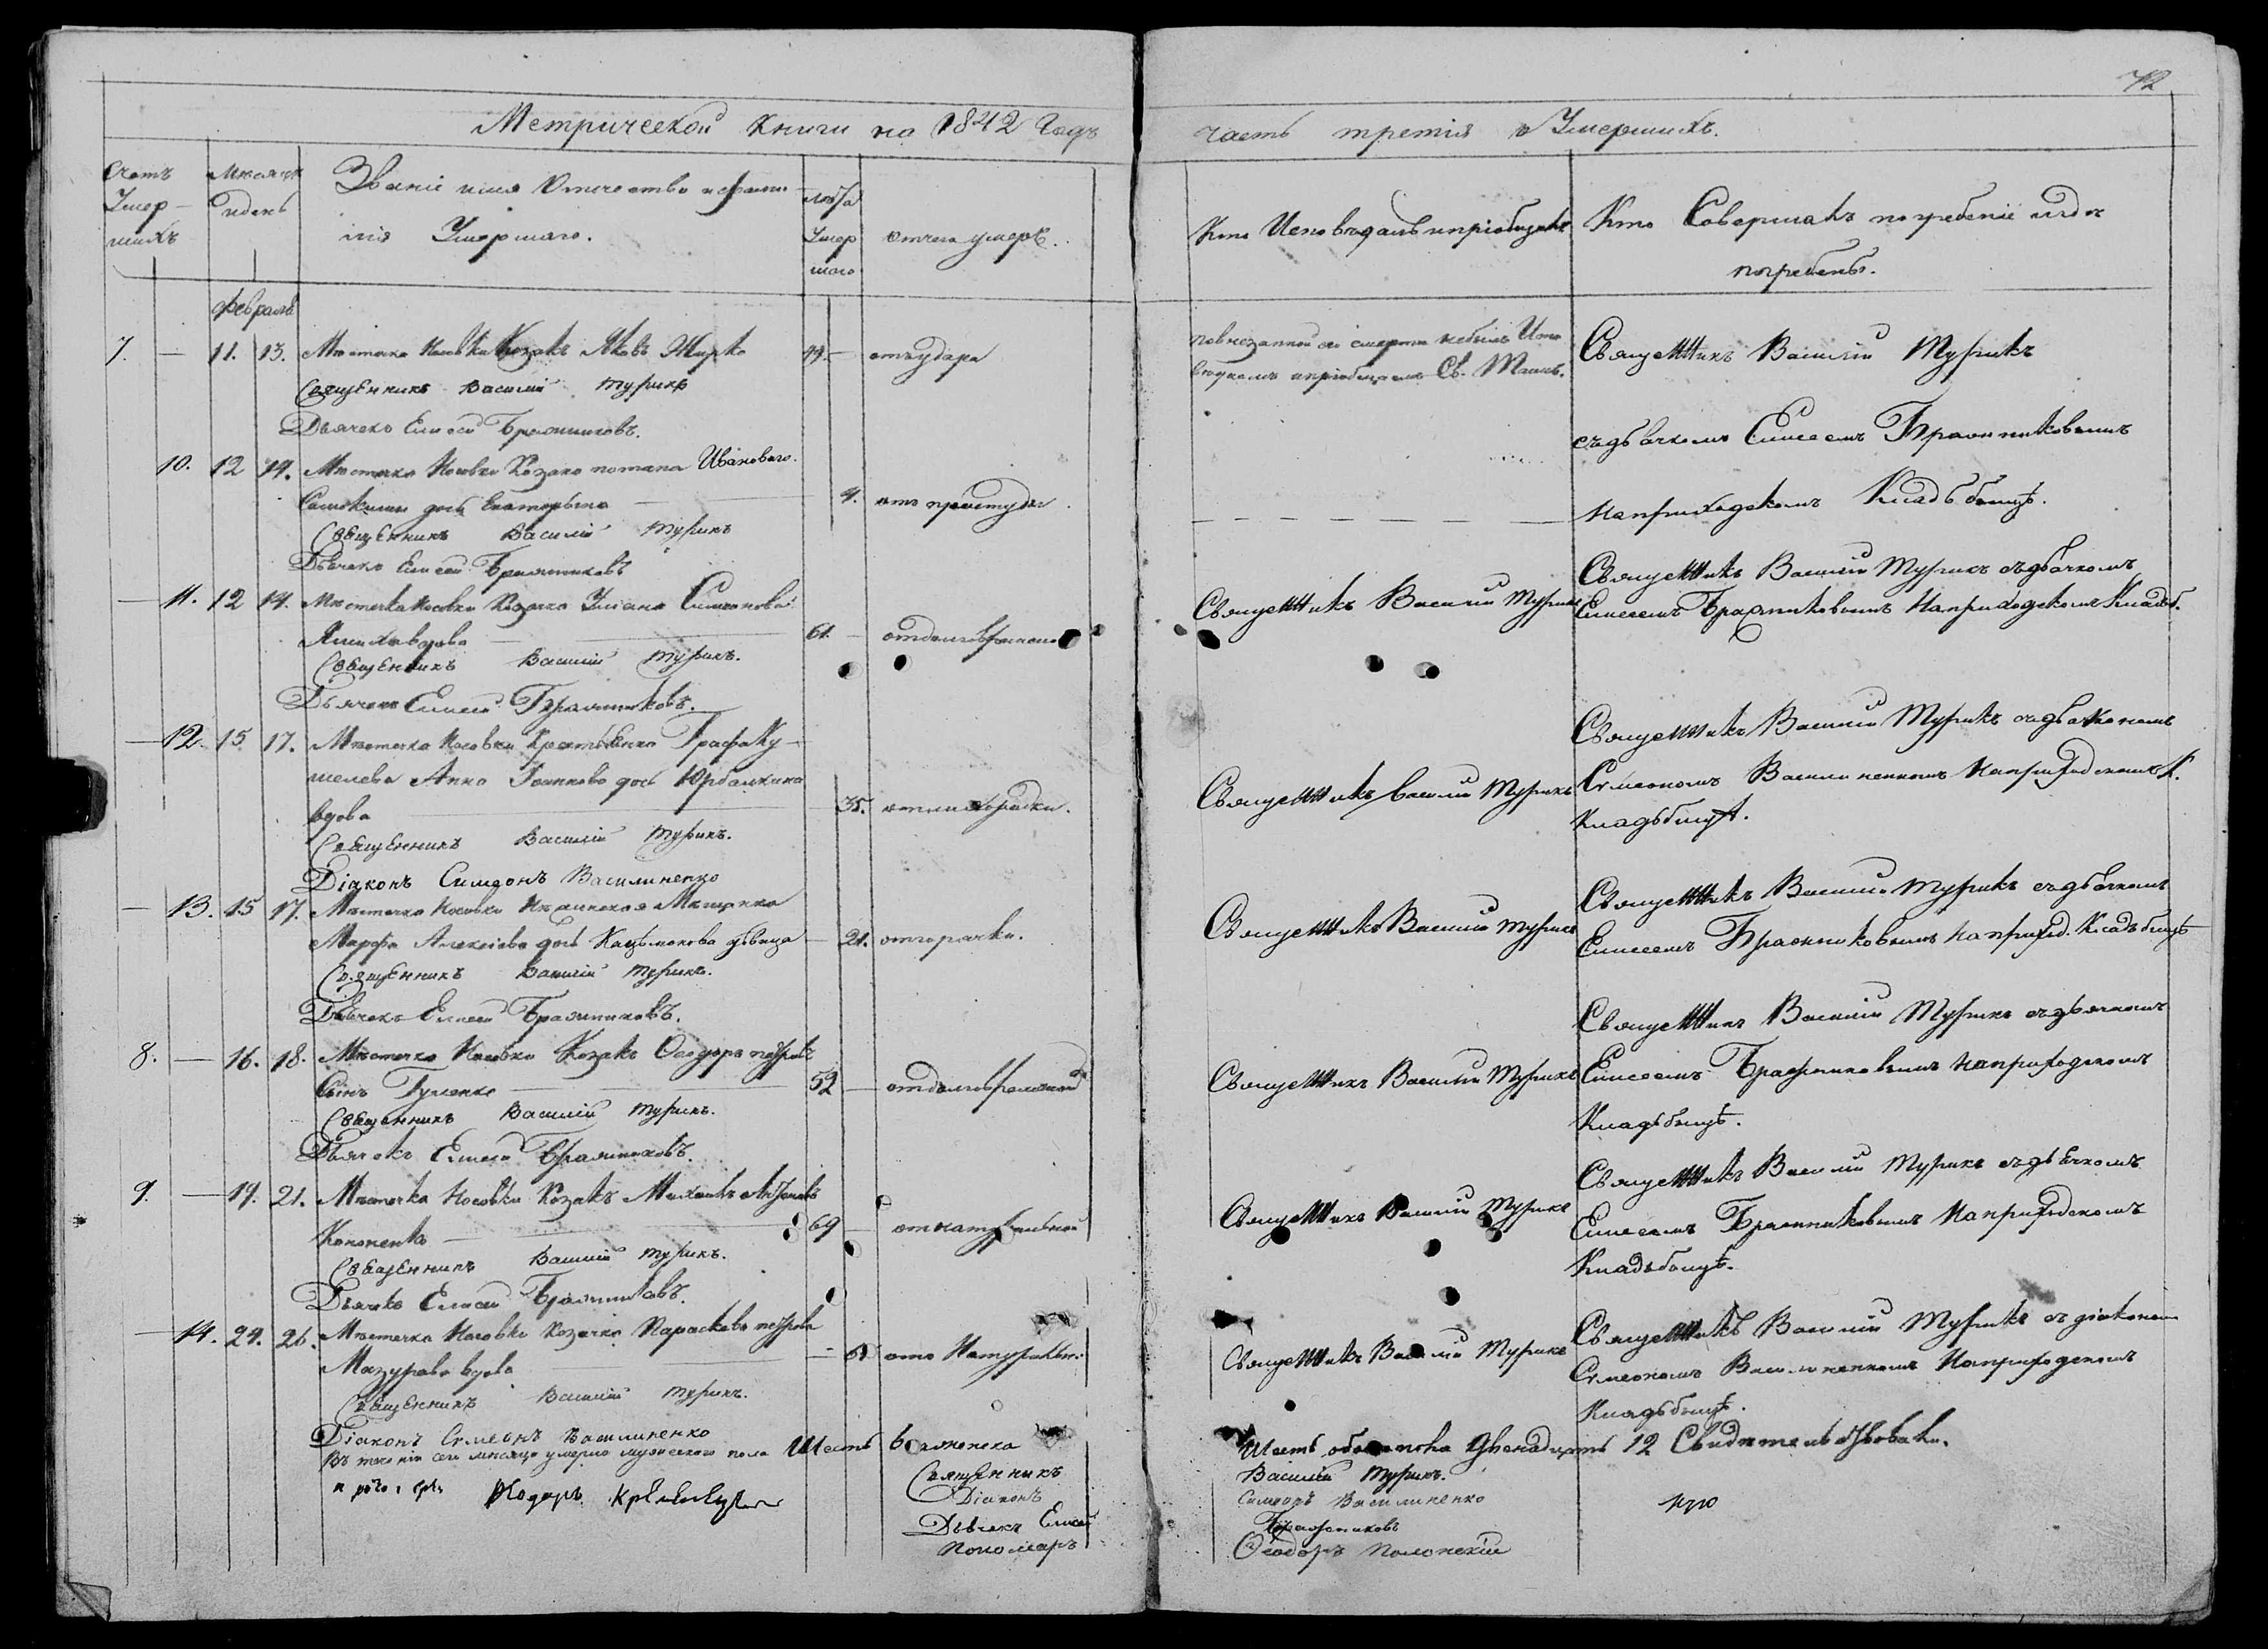 72
Метрической книги на 1842 Годъ часть третія о Умершихъ.
Счетъ Умер-шихъ
Месяцъ и день
Званіе имя Отчество и фами-
лія Умершаго.
лѣта Умер шаго
отчего умеръ.
Кто Исповѣдалъ и пріобщалъ
Кто Совершалъ погребеніе и гдѣ
погребены.
Февраль
7. — 11. 13. Мѣстечка Носовки Козакъ Яковъ Жирко 79. — отъ удара
по внезапной его смерти небылъ Испо
вѣдкомъ и пріобщаемъ Св. Таинъ.
Священникъ Василій Турикъ
Священникъ Василій Турикъ
Дьячекъ Елисей Бражниковъ.
съ дьячкомъ Елисеемъ Бражниковымъ
на приходскомъ Кладбищѣ.
10. 12 14. Мѣстечка Носовки Козака Потапа Ивановаго.
дочь Екатерина — 4. отъ простуды.
Священникъ Василій Турикъ
Дьячекъ Елисей Бражниковъ
— 11. 12 14. Мѣстечка Носовки Козачка Уліана Симеонова
вдова — 61. —
Священникъ Василій Турикъ
Священникъ Василій Турикъ съ дьячкомъ
Елисеемъ Бражниковымъ На приходскомъ Кладб.
Священникъ Василій Турикъ.
Дьячекъ Елисей Бражниковъ.
— 12. 15 17. Мѣстечка Носовки Графа Ку-
шелева Анна дочь
вдова — 35. отъ лихорадки.
Священникъ Василій Турикъ
Священникъ Василій Турикъ
Симеономъ Василиненкомъ На приходскомъ К.
Кладьбищѣ.
Священникъ Василій Турикъ.
Діаконъ Симеонъ Василиненко
— 13. 15 17. Мѣстечка Носовки Нѣжинская Мѣщанка
Марфа Алексіева дочь дѣвица — 21. отъ горячки.
Священникъ Василій Турикъ
Священникъ Василій Турикъ съ дьячкомъ
Елисеемъ Бражниковымъ На приход. Кладьбищѣ
Священникъ Василій Турикъ.
Дьячекъ Елисей Бражниковъ.
8. — 16. 18. Мѣстечка Носовки Козакъ Ѳеодоръ Петровъ
Сынъ Гуменко — 52 —
Священникъ Василій Турикъ
Священникъ Василій Турикъ съ дьячкомъ
Елисеемъ Бражниковымъ На приходскомъ
Кладьбищѣ.
Священникъ Василій Турикъ.
Дьячекъ Елисей Бражниковъ.
9. — 19. 21. Мѣстечка Носовки Козакъ Михаилъ
Кононенко — 69 — отъ натуральной
Священникъ Василій Турикъ
Священникъ Василій Турикъ съ дьячкомъ
Елисеемъ Бражниковымъ На приходскомъ
Кладьбищѣ.
Священникъ Василій Турикъ.
Дьячекъ Елисей Бражниковъ.
— 14. 24. 26. Мѣстечка Носовки Козачка Парасковія Петрова
Мазурова вдова — отъ Натуральн.
Священникъ Василій Турикъ
Священникъ Василій Турикъ съ діакономъ
Симеономъ Василиненкомъ На приходскомъ
Кладьбищѣ.
Священникъ Василій Турикъ.
Діаконъ Симеонъ Василиненко
Въ теченіи сего мѣсяца умерло мужескаго пола Шесть женска Шесть обоего пола Двенадцать 12 Свидѣтельствовали.
Священникъ Василій Турикъ.
Діаконъ Симеонъ Василиненко
Дьячекъ Елисей Бражниковъ
Пономарь Ѳеодоръ Полонскій